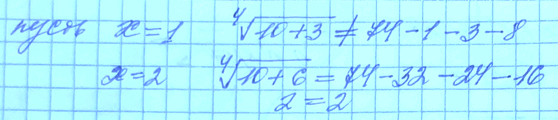 пусть x=1 ∜10+3 ≠ 74-1-3-8
x=2 ∜10+6 = 74-32-24-16
2=2